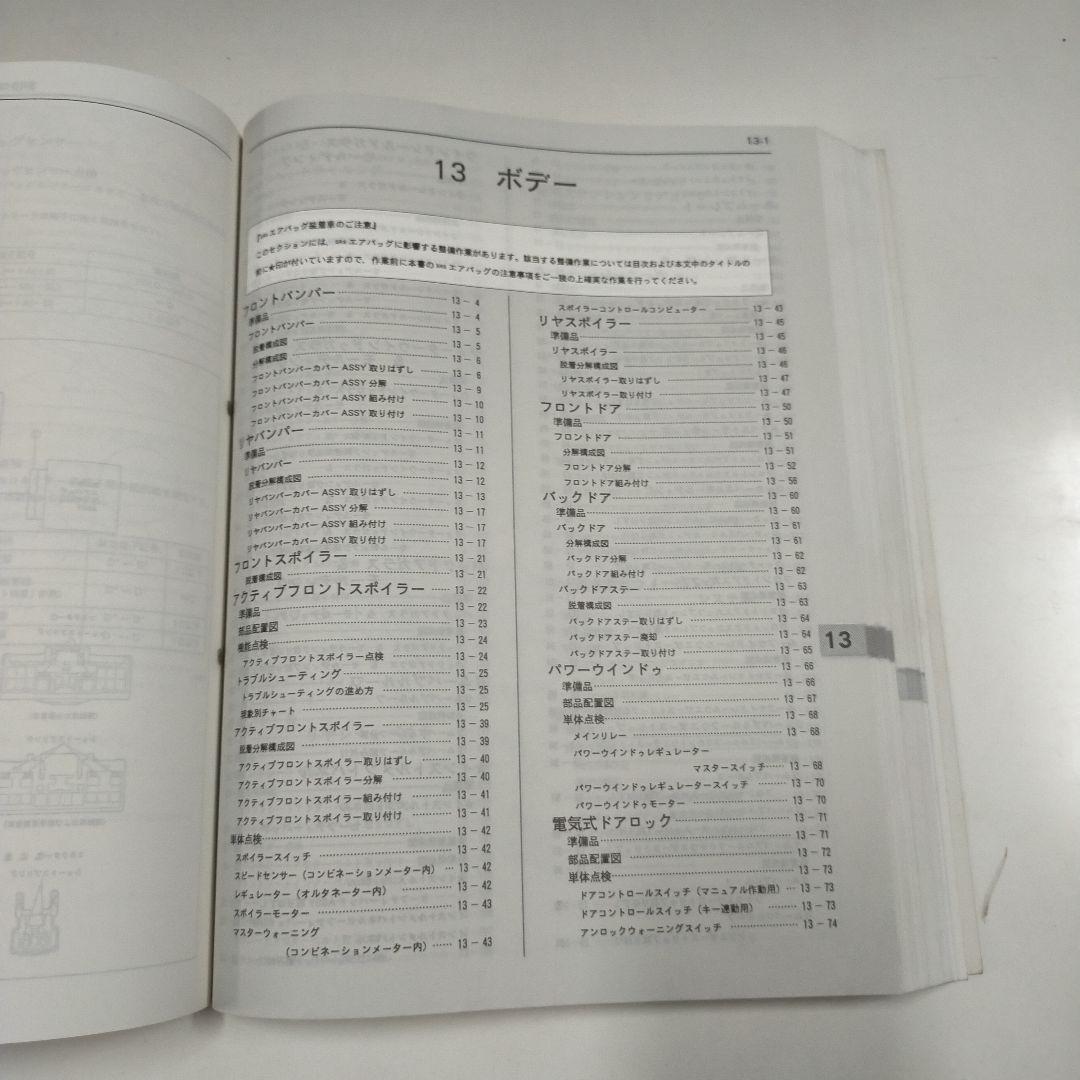 13-1
13 ボデー
『SRS エアバッグ装着車のご注意』
このセクションには、SRS エアバッグに影響する整備作業があります。該当する整備作業については目次および本文中のタイトルの
前に★印が付いていますので、作業前に本書の SRS エアバッグの注意事項をご一読の上確実な作業を行ってください。
フロントバンパー 13-4
準備品 13-4
フロントバンパー 13-5
脱着構成図 13-5
分解構成図 13-6
フロントバンパーカバー ASSY 取りはずし 13-6
フロントバンパーカバー ASSY 分解 13-9
フロントバンパーカバー ASSY 組み付け 13-10
フロントバンパーカバー ASSY 取り付け 13-10
リヤバンパー 13-11
準備品 13-11
リヤバンパー 13-12
脱着分解構成図 13-12
リヤバンパーカバー ASSY 取りはずし 13-13
リヤバンパーカバー ASSY 分解 13-17
リヤバンパーカバー ASSY 組み付け 13-17
リヤバンパーカバー ASSY 取り付け 13-17
フロントスポイラー 13-21
脱着構成図 13-21
アクティブフロントスポイラー 13-22
準備品 13-22
部品配置図 13-23
機能点検 13-24
アクティブフロントスポイラー点検 13-24
トラブルシューティング 13-25
トラブルシューティングの進め方 13-25
現象別チャート 13-25
アクティブフロントスポイラー 13-39
脱着分解構成図 13-39
アクティブフロントスポイラー取りはずし 13-40
アクティブフロントスポイラー分解 13-40
アクティブフロントスポイラー組み付け 13-41
アクティブフロントスポイラー取り付け 13-41
単体点検 13-42
スポイラースイッチ 13-42
スピードセンサー（コンビネーションメーター内） 13-42
レギュレーター（オルタネーター内） 13-42
スポイラーモーター 13-43
マスターウォーニング
（コンビネーションメーター内） 13-43
スポイラーコントロールコンピューター 13-43
リヤスポイラー 13-45
準備品 13-45
リヤスポイラー 13-46
脱着分解構成図 13-46
リヤスポイラー取りはずし 13-47
リヤスポイラー取り付け 13-47
フロントドア 13-50
準備品 13-50
フロントドア 13-51
分解構成図 13-51
フロントドア分解 13-52
フロントドア組み付け 13-56
バックドア 13-60
準備品 13-60
バックドア 13-61
分解構成図 13-61
バックドア分解 13-62
バックドア組み付け 13-62
バックドアステー 13-63
脱着構成図 13-63
バックドアステー取りはずし 13-64
バックドアステー廃却 13-64
バックドアステー取り付け 13-65
パワーウインドゥ 13-66
準備品 13-66
部品配置図 13-67
単体点検 13-68
メインリレー 13-68
パワーウインドゥレギュレーター
マスタースイッチ 13-68
パワーウインドゥレギュレータースイッチ 13-70
パワーウインドゥモーター 13-70
電気式ドアロック 13-71
準備品 13-71
部品配置図 13-72
単体点検 13-73
ドアコントロールスイッチ（マニュアル作動用） 13-73
ドアコントロールスイッチ（キー連動用） 13-73
アンロックウォーニングスイッチ 13-74
13